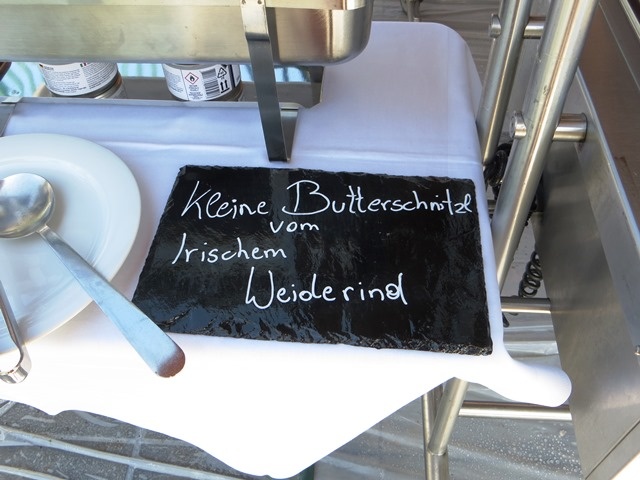 Kleine Butterschnitzl
vom
Irischem
Weiderind